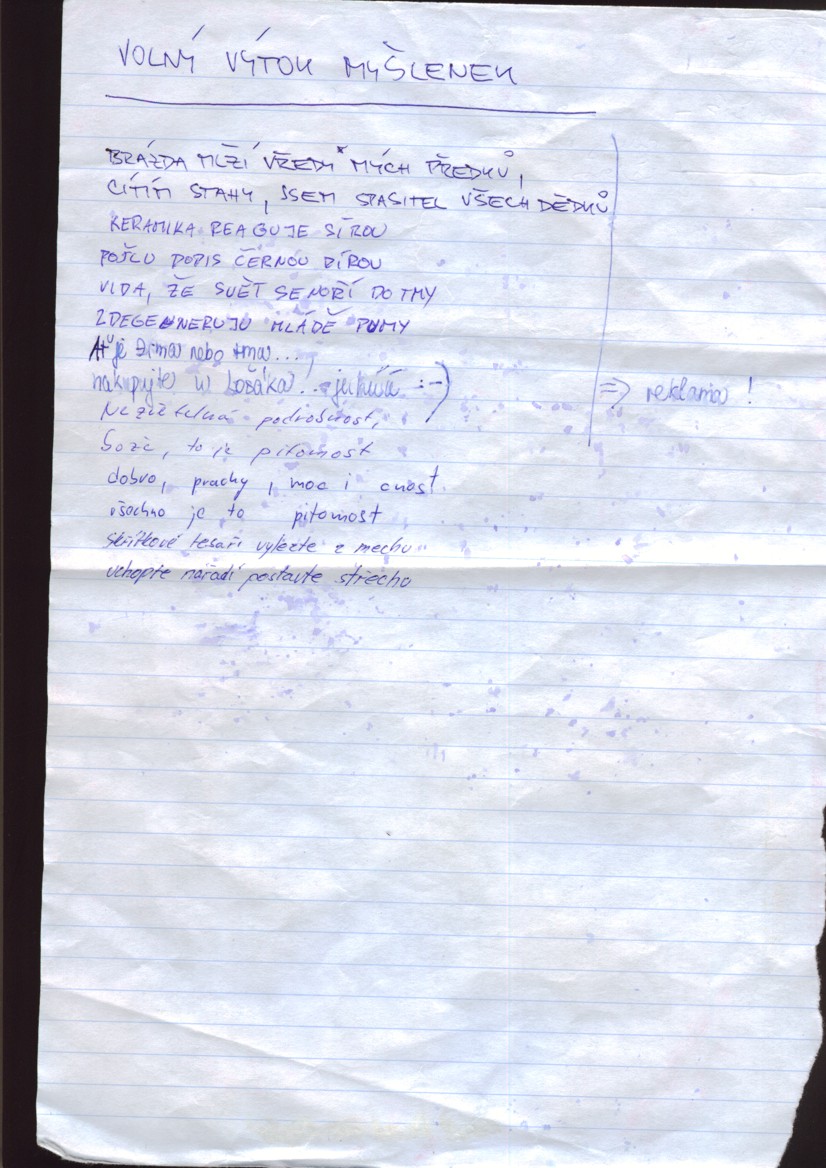 VOLNÝ VÝTOK MYŠLENEK
BRÁZDA MLŽÍ VŘEDY MÝCH PŘEDKŮ,
CÍTÍM STAHY, JSEM SPASITEL VŠECH DĚDKŮ
KERAMIKA REAGUJE SÍROU
POŠLU DOPIS ČERNOU DÍROU
VIDA, ŽE SVĚT SE NOŘÍ DO TMY
ZDEGENERUJU MLÁDĚ PUMY
Ať je zima nebo tma...
nakupujte u Lošáka! :-) => reklama!
podrobnost,
Sozě, to je pitomost
dobro, prachy, moc i cnost
všechno je to pitomost
skřítkové tesaři vylezte z mechu
uchopte nářadí postavte střechu